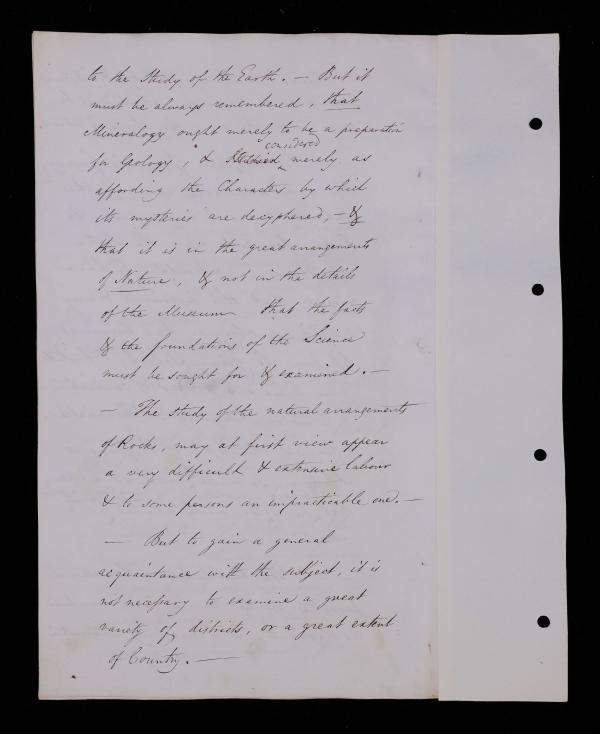 to the Study of the Earth. — But it
must be always remembered, that
Mineralogy ought merely to be a preparation
considered
for Geology, & Studied merely as
affording the Characters by which
its mysteries are decyphered, — &
that it is in the great arrangements
of Nature, & not in the details
of the Museum that the facts
& the foundations of the Science
must be sought for & examined. —
— The study of the natural arrangements
of Rocks, may at first view appear
a very difficult & extensive labour
& to some persons an impracticable one. —
— But to gain a general
acquaintance with the subject, it is
not necessary to examine a great
variety of districts, or a great extent
of Country. —